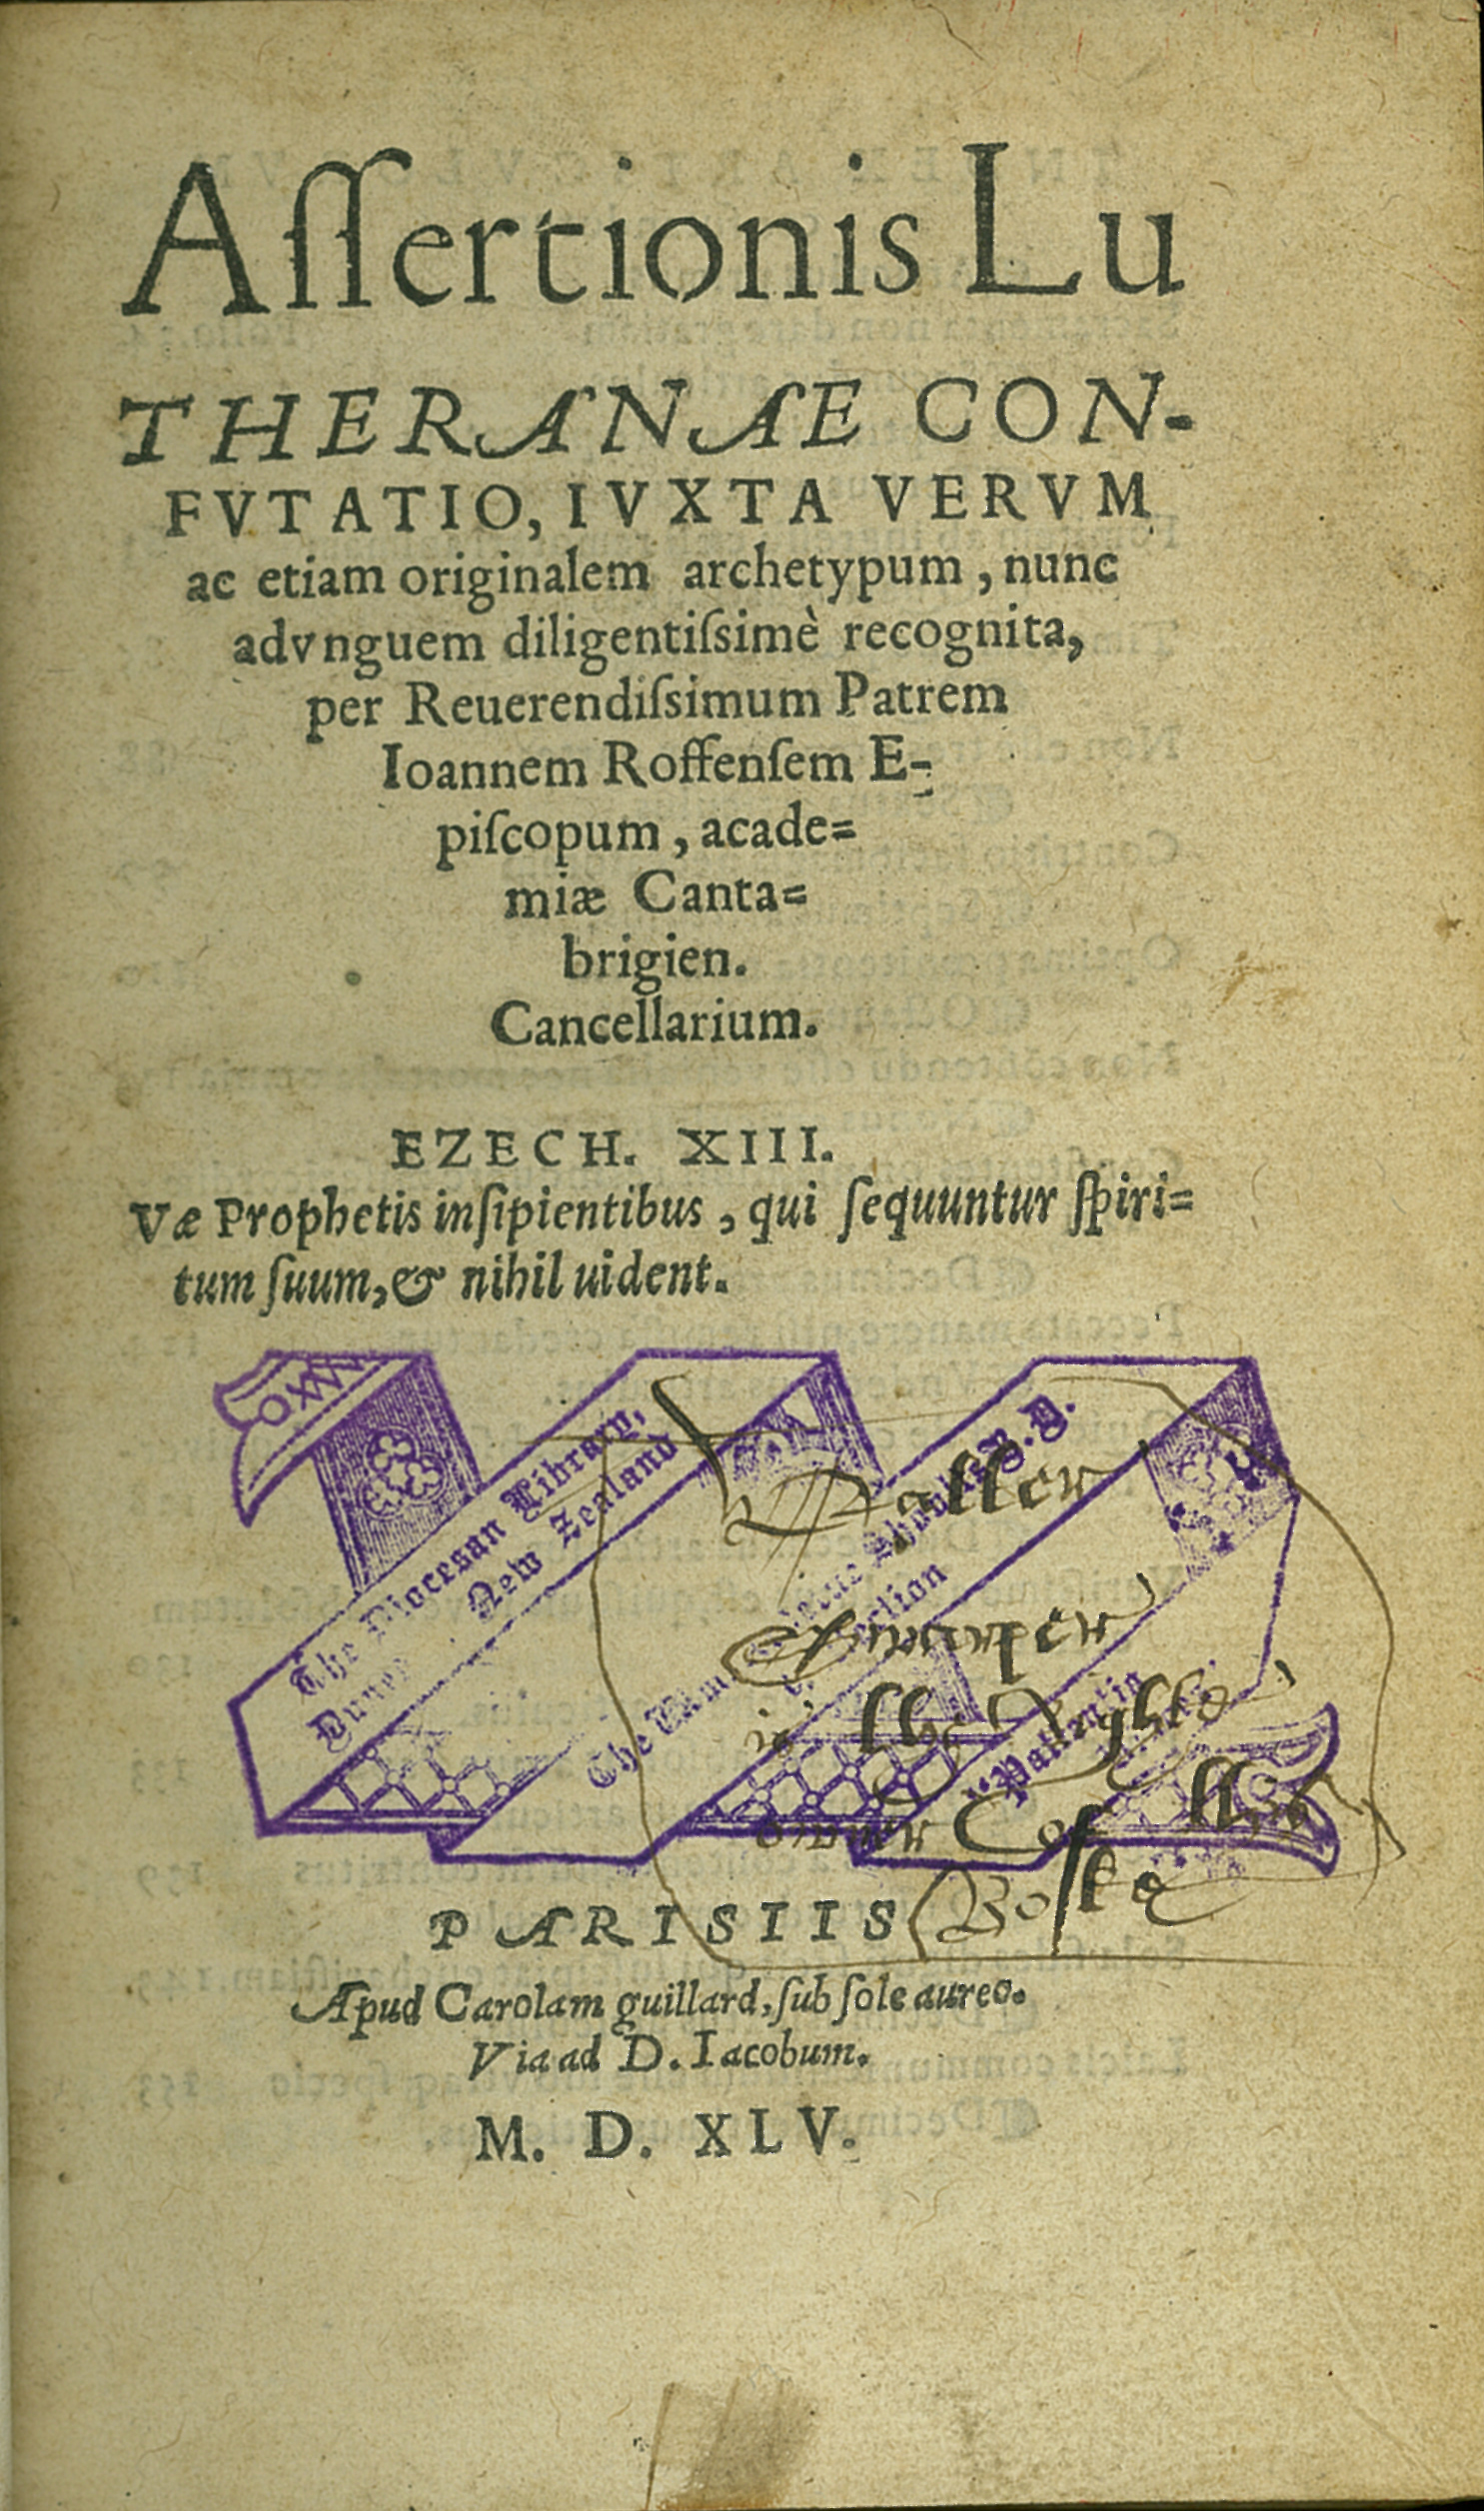 Aſſertionis Lu
THERANAE CON-
FVTATIO, IVXTA VERVM
ac etiam originalem archetypum, nunc
advnguem diligentiſsimè recognita,
per Reuerendiſsimum Patrem
Ioannem Roffenſem E-
piſcopum, acade=
miæ Canta=
brigien.
Cancellarium.
EZECH. XIII.
Væ Prophetis inſipientibus, qui ſequuntur ſpiri=
tum ſuum, & nihil uident.
The Diocesan Library,
New Zealand
The
Shoults
D.
Collection
Walter
is the Righte
owner of this
Boke
PARISIIS
Apud Carolam guillard, ſub ſole aureo.
Via ad D. Iacobum.
M. D. XLV.